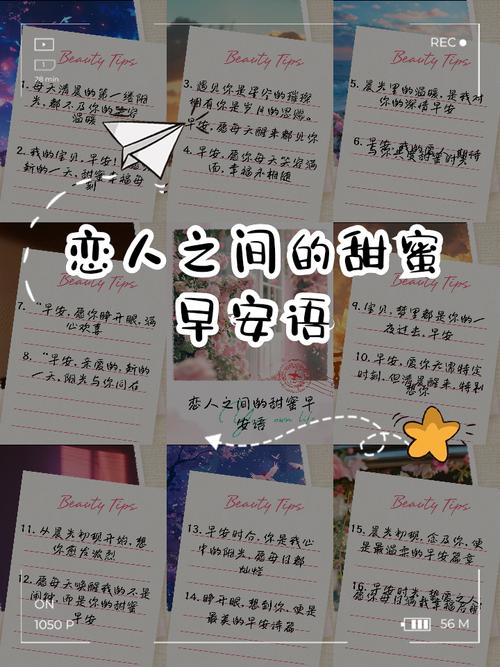 REC
28 min
Beauty Tips
1. 每天清晨的第一缕阳
光，都不及你的笑容
温暖
2. 我的宝贝，早安！
新的一天，甜蜜幸福每
刻
Beauty Tips
3. 遇见你是星空的璀璨
拥有你是岁月的恩赐。
早安，愿每天醒来都见你
4. 早安，愿你每天笑容满
面，幸福永相随
Beauty Tips
5. 晨光里的温暖，是我对
你的深情早安
6. 早安，我的爱人，期待
与你共度甜蜜时光
恋人之间的甜蜜
早安语
Beauty Tips
7. “早安，愿你睁开眼，满
心欢喜
8. “早安，亲爱的，新的
一天，阳光与你同在
恋人之间的甜蜜早
安语
own life
9. 宝贝，梦里都是你的一
夜过去，早安
10. 早安，爱你无需特定
时刻，但清晨醒来，特别
想你
Beauty Tips
11. 从晨光初现开始，想
你愈发浓烈
12. 愿每天唤醒我的不是
闹钟，而是你的甜蜜
早安
Beauty Tips
13. 早安时分，你是我心
中的阳光，愿每日都
灿烂
14. 睁开眼，想到你，便是
最美的早安诗篇
Beauty Tips
15. 晨光初现，念及你，便
是最温柔的早安篇章
16. 早安时光，想爱之人
愿你每日满载幸福启程
ON
1050 P
56 M